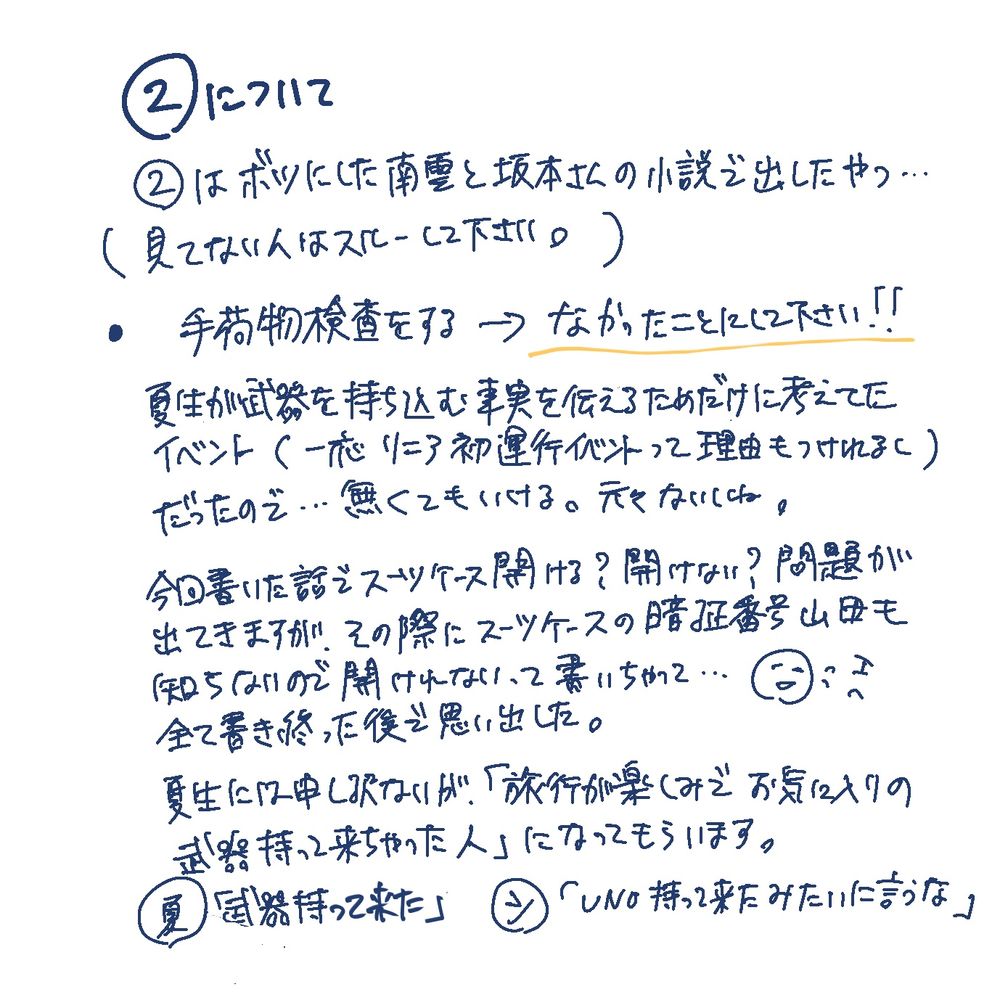 ②について
②はボツにした南雲と坂本さんの小説で出したやつ…
(見てない人はスルーして下さい。)
• 手荷物検査をする → なかったことにして下さい!!
夏生が武器を持ち込む事実を伝えるためだけに考えてた
イベント(一応リニア初運行イベントって理由もつけれるし)
だったので…無くてもいける。元々ないしね。
今回書いた話でスーツケース開ける?開けない?問題が
出てきますが、その際にスーツケースの暗証番号山田も
知らないので開けれないって書いちゃって…
全て書き終った後で思い出した。
夏生には申し訳ないが、「旅行が楽しみでお気に入りの
武器持って来ちゃった人」になってもらいます。
夏「武器持って来た」 シ「UNO持って来たみたいに言うな」